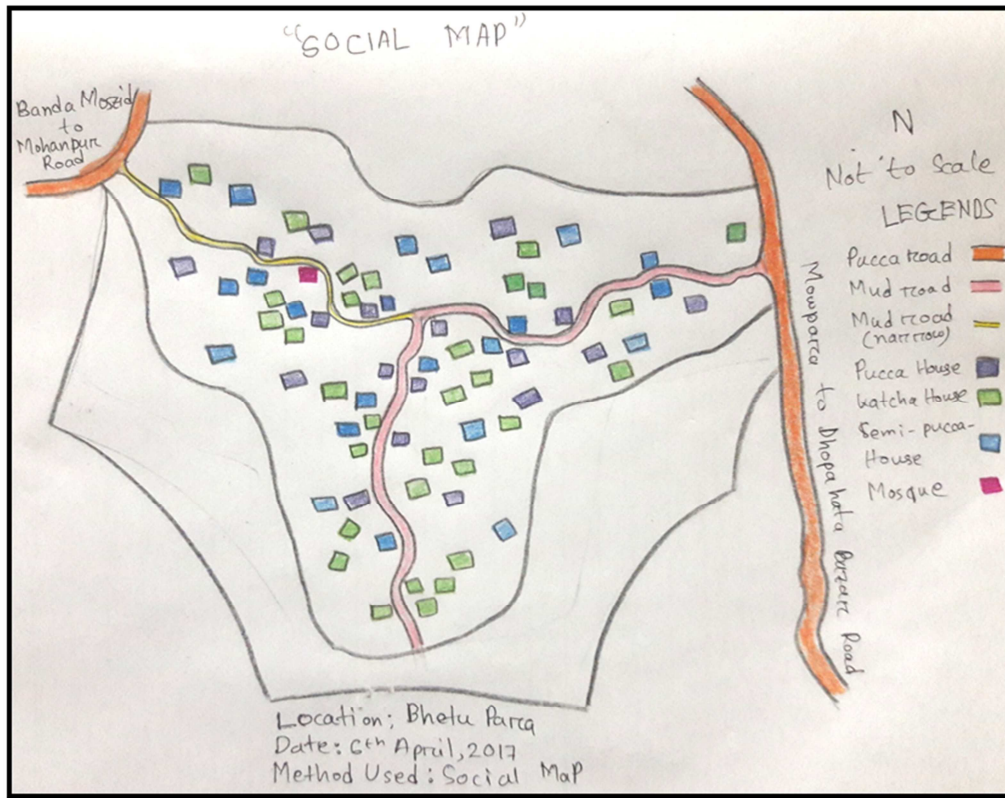 "SOCIAL MAP"
Banda Moszid
to
Mohanpur
Road
N
Not to Scale
LEGENDS
Pucca road
Mud road
Mud road
(narrow)
Pucca House
katcha House
Semi-pucca-
House
Mosque
Mowparca to Dhopahata Bazare Road
Location: Bhelu Parca
Date: 6th April, 2017
Method Used: Social Map